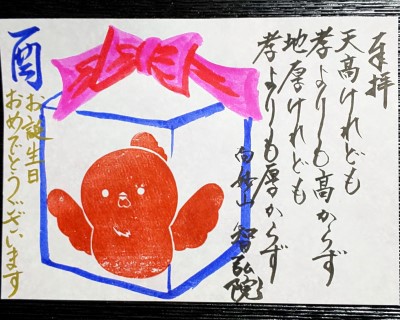 奉拝
天高けれども
孝よりも高からず
地厚けれども
孝よりも厚からず
智弘院
酉
お誕生日
おめでとうございます